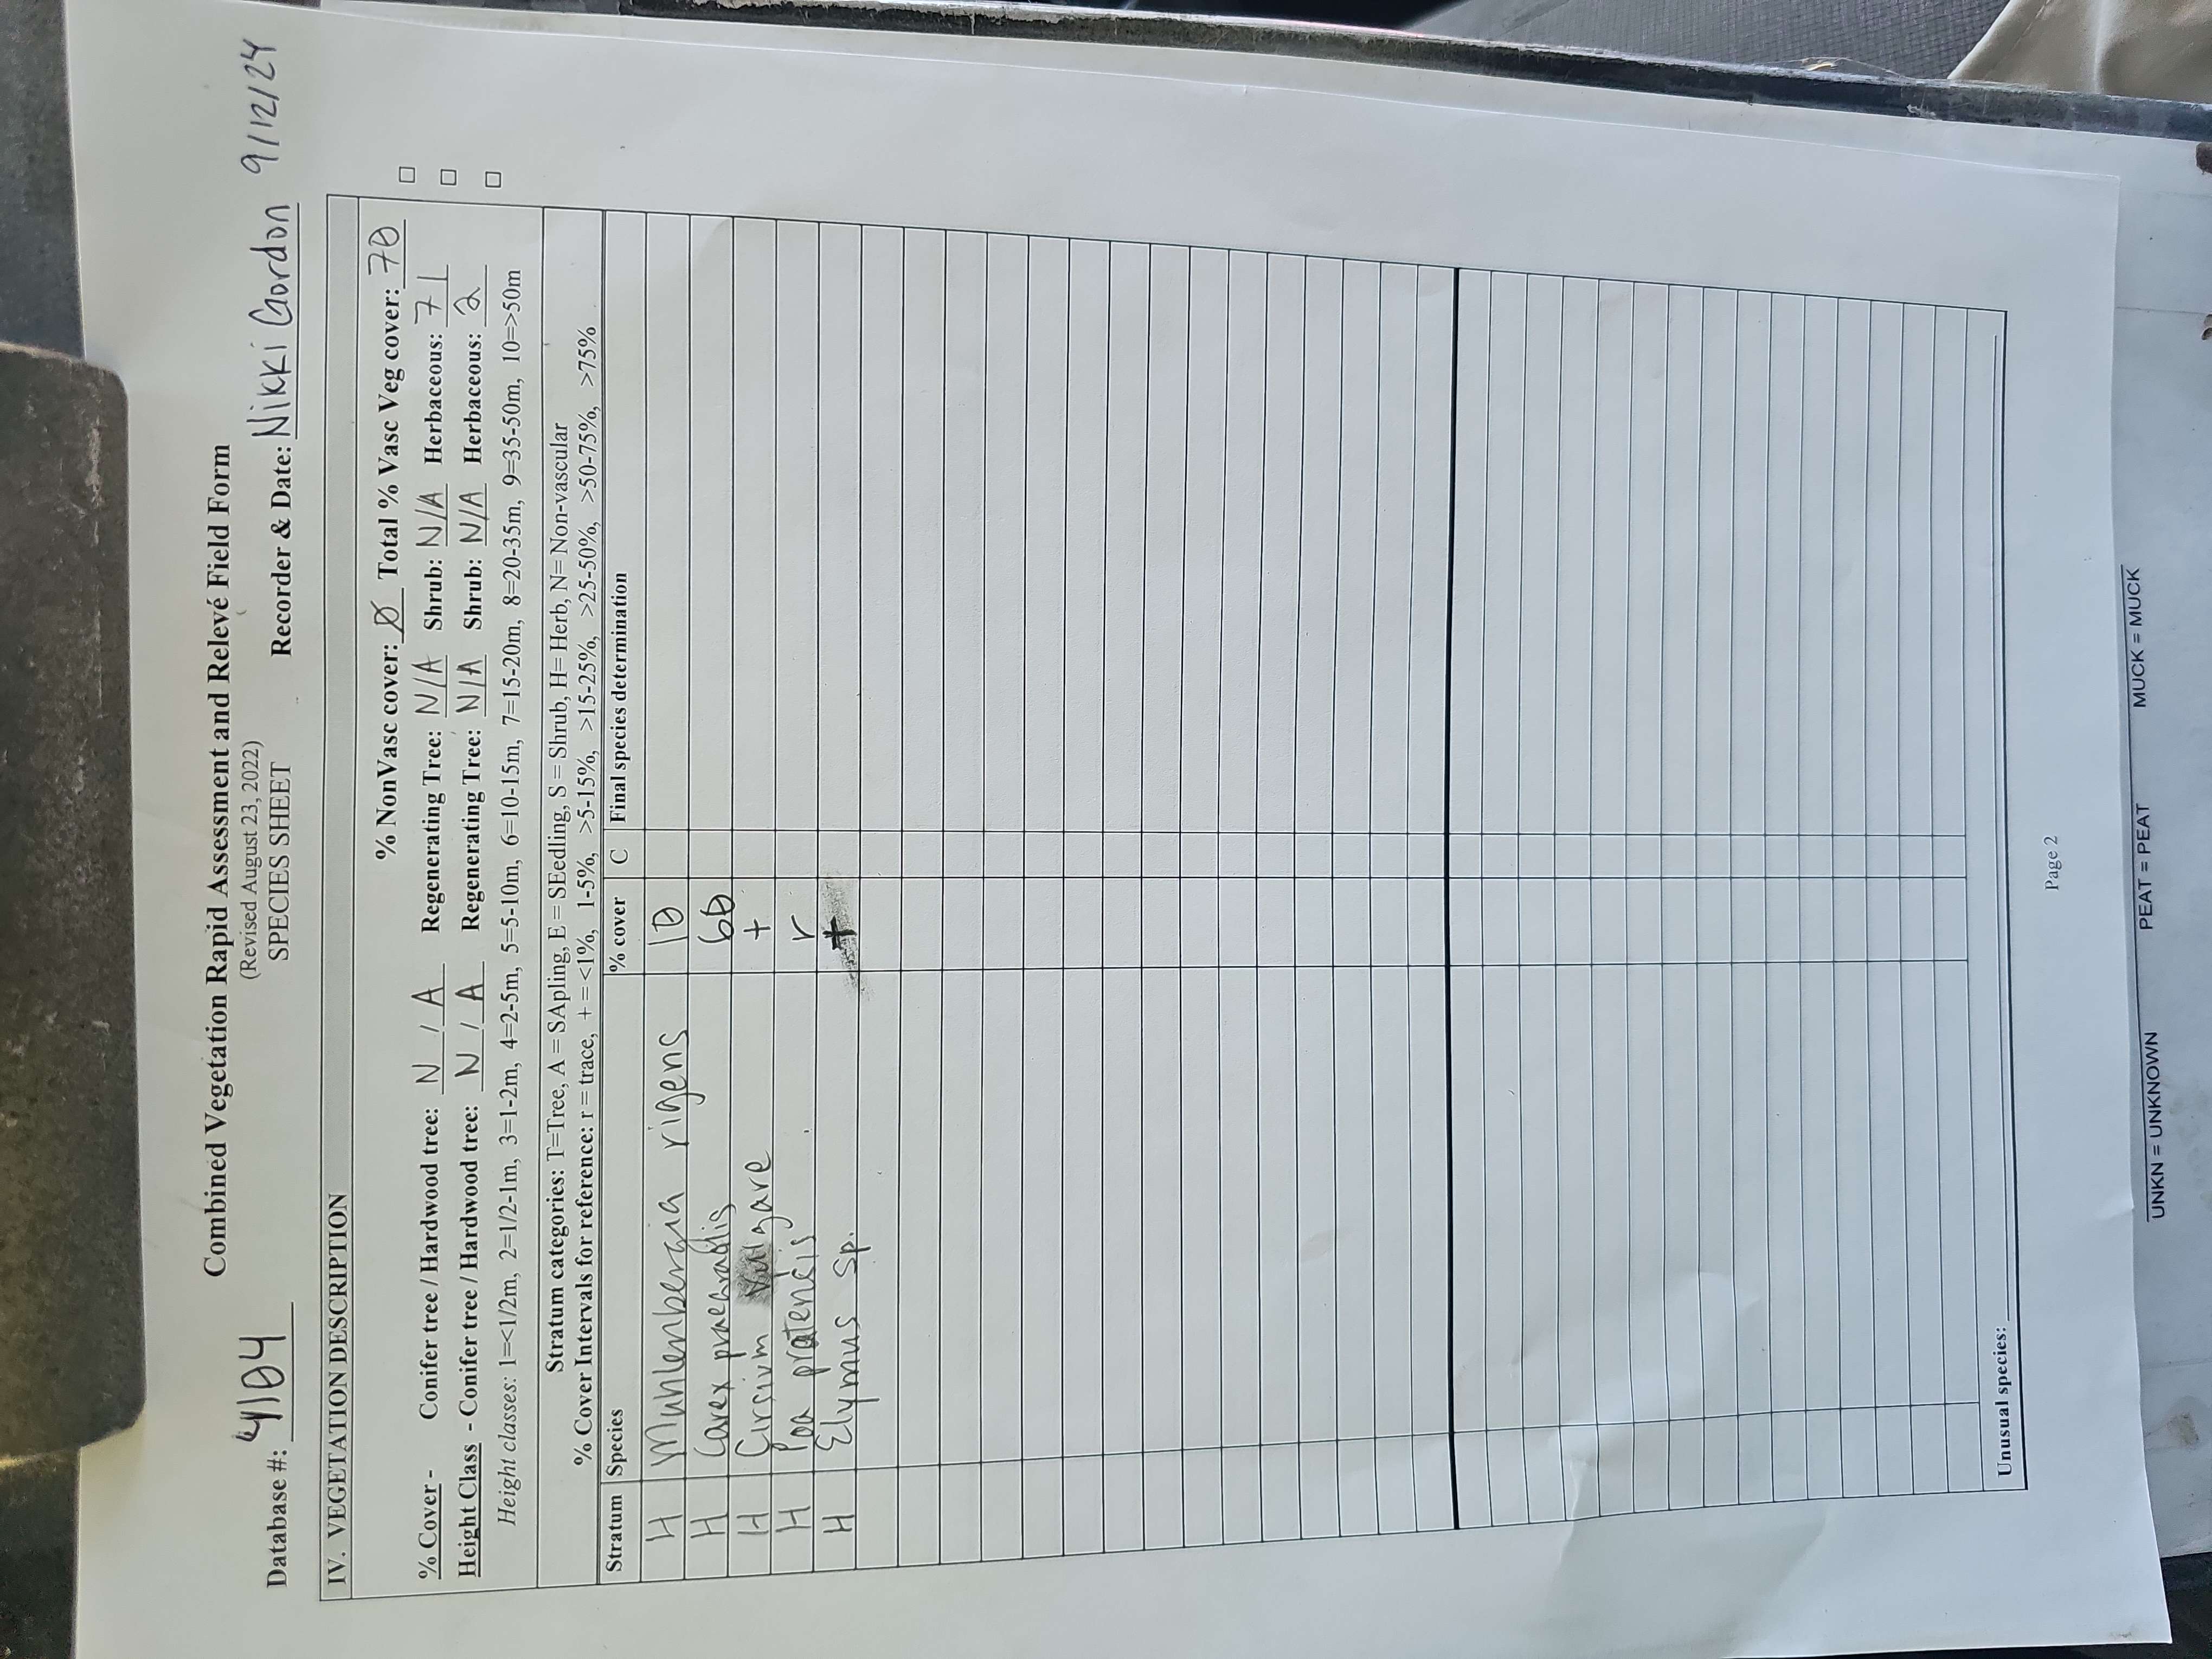 Combined Vegetation Rapid Assessment and Relevé Field Form
(Revised August 23, 2022)
Database #: 4104 SPECIES SHEET Recorder & Date: Nikki Gordon 9/12/24
IV. VEGETATION DESCRIPTION
% NonVasc cover: Ø Total % Vasc Veg cover: 70
% Cover - Conifer tree / Hardwood tree: N / A Regenerating Tree: N/A Shrub: N/A Herbaceous: 71
Height Class - Conifer tree / Hardwood tree: N / A Regenerating Tree: N/A Shrub: N/A Herbaceous: 2
Height classes: 1=<1/2m, 2=1/2-1m, 3=1-2m, 4=2-5m, 5=5-10m, 6=10-15m, 7=15-20m, 8=20-35m, 9=35-50m, 10=>50m
Stratum categories: T=Tree, A = SApling, E = SEedling, S = Shrub, H= Herb, N= Non-vascular
% Cover Intervals for reference: r = trace, + = <1%, 1-5%, >5-15%, >15-25%, >25-50%, >50-75%, >75%
Stratum Species % cover C Final species determination
H Muhlenbergia rigens 10
H Carex praegracilis 60
H Cirsium vulgare +
H Poa pratensis r
H Elymus sp. +
Unusual species:
Page 2
UNKN = UNKNOWN PEAT = PEAT MUCK = MUCK